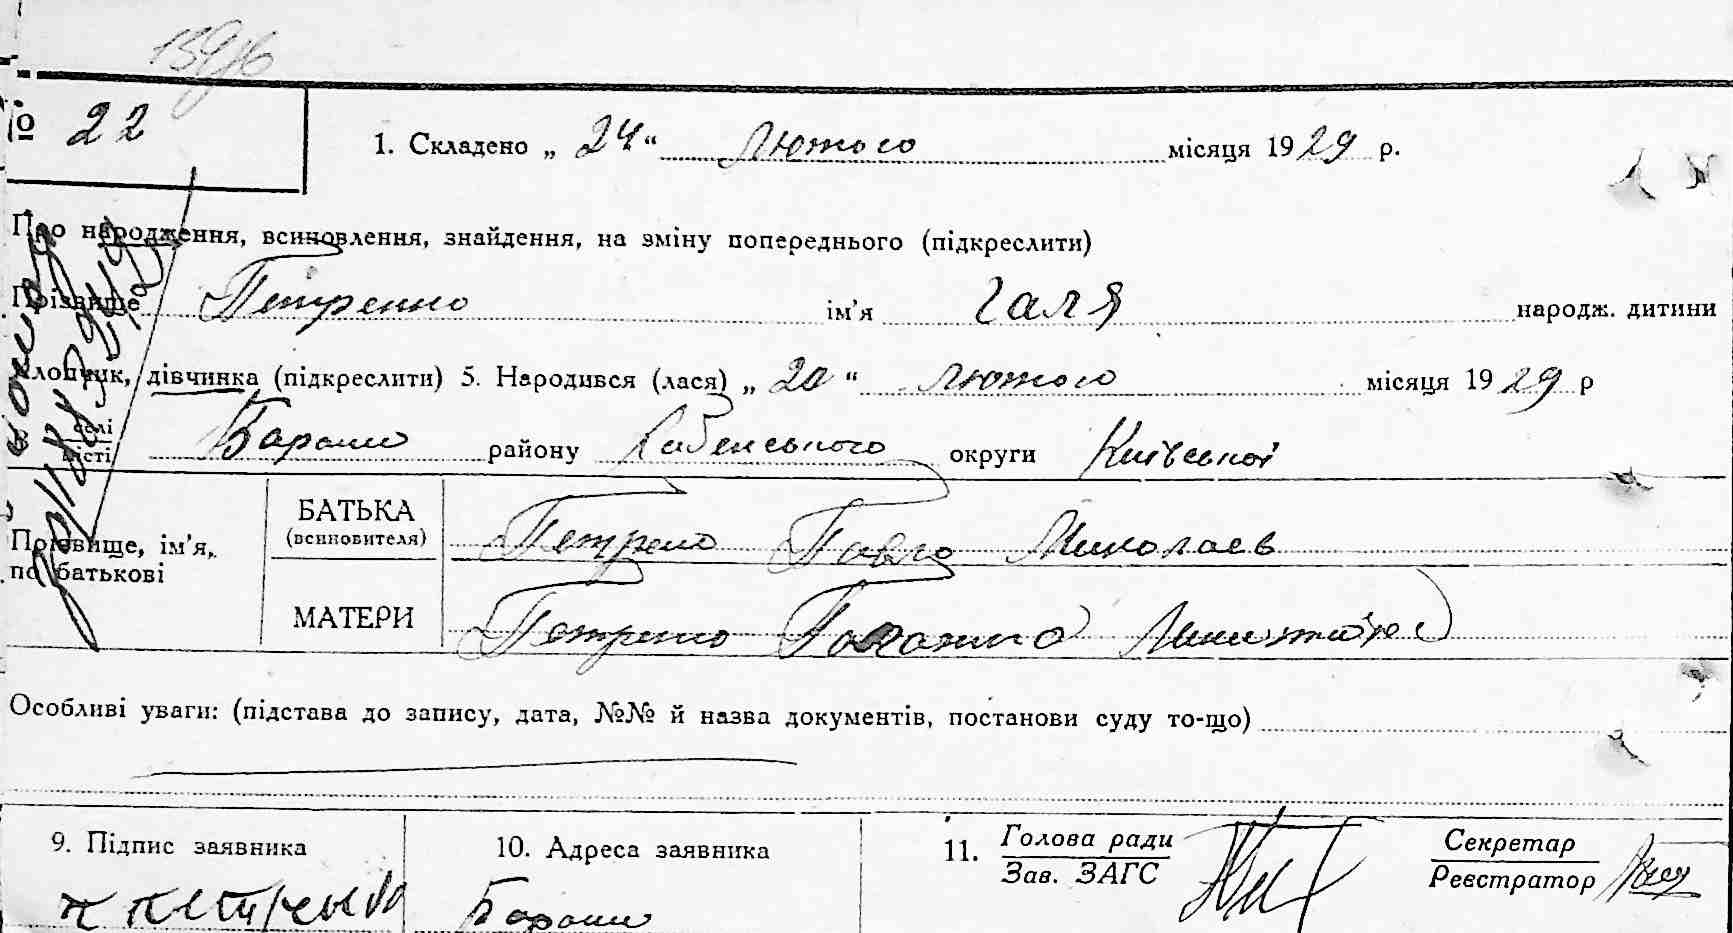 139/6
№ 22
1. Складено „ 24 “ лютого місяця 1929 р.
Про народження, всиновлення, знайдення, на зміну попереднього (підкреслити)
Прізвище Петренко ім’я Галя народж. дитини
Хлопчик, дівчинка (підкреслити) 5. Народився (лася) „ 20 “ лютого місяця 1929 р
в селі місті район у Київської округи
БАТЬКА
(всиновителя) Петренко Павло Миколаєв
Прізвище, ім’я,
по батькові
МАТЕРИ Петренко
Особливі уваги: (підстава до запису, дата, №№ й назва документів, постанови суду то-що)
9. Підпис заявника 10. Адреса заявника 11. Голова ради Секретар
Зав. ЗАГС Реєстратор